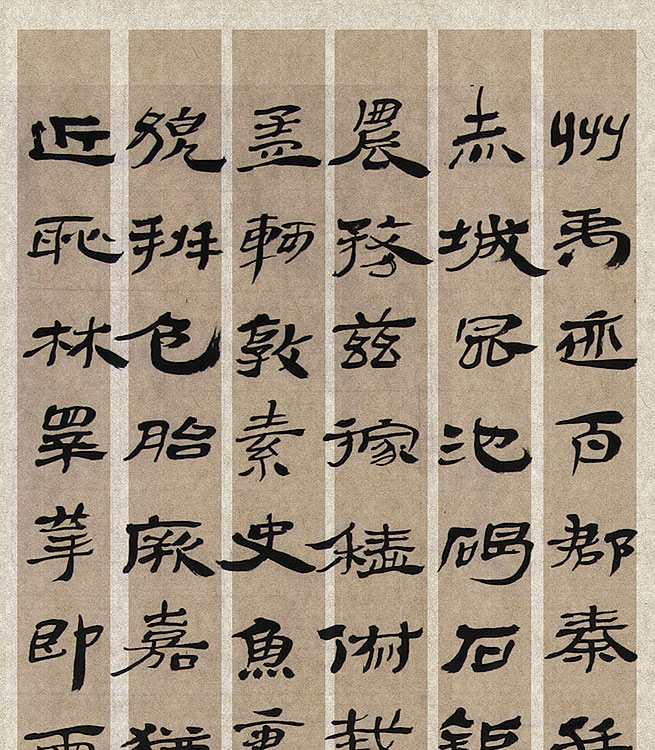 州禹迹百郡秦并
赤城昆池碣石鉅
農務茲稼穡俶載
孟軻敦素史魚秉
貌辨色貽厥嘉猷
近恥林皋幸即兩